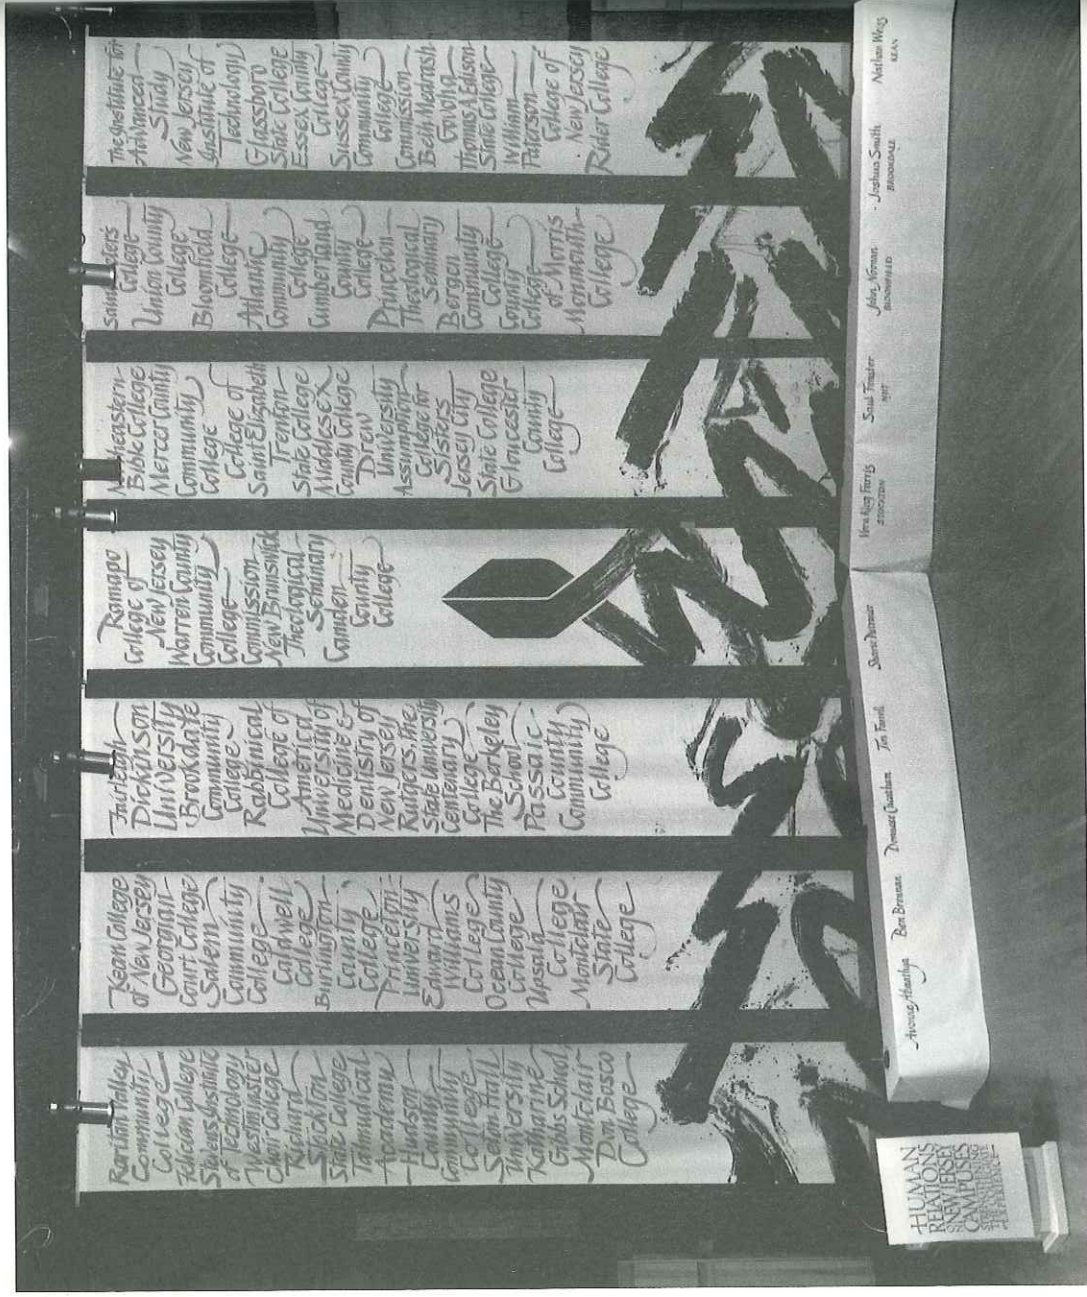 Raritan Valley
Community
College
Felician College
Stevens Institute
of Technology
Westminster
Choir College
Richard
Stockton
State College
Talmudical
Academy
Hudson
County
Community
College
Seton Hall
University
Katharine
Gibbs School,
Montclair
Don Bosco
College
Kean College
of New Jersey
Georgian
Court College
Salem
Community
College
Caldwell
College
Burlington
County
College
Princeton
University
Edward
Williams
College
Ocean County
College
Upsala
College
Montclair
State
College
Fairleigh
Dickinson
University
Brookdale
Community
College
Rabbinical
College of
America
University of
Medicine &
Dentistry of
New Jersey
Rutgers, the
State University
Centenary
College
The Berkeley
School
Passaic
County
Community
College
Ramapo
College of
New Jersey
Warren County
Community
College
Commission
New Brunswick
Theological
Seminary
Camden
County
College
Northeastern
Bible College
Mercer County
Community
College
College of
Saint Elizabeth
Trenton
State College
Middlesex
County College
Drew
University
Assumption
College for
Sisters
Jersey City
State College
Gloucester
County
College
Saint Peters
College
Union County
College
Bloomfield
College
Atlantic
Community
College
Cumberland
County
College
Princeton
Theological
Seminary
Bergen
Community
College
County
College
of Morris
Monmouth
College
The Institute for
Advanced
Study
New Jersey
Institute of
Technology
Glassboro
State College
Essex County
College
Sussex County
Community
College
Commission
Beth Medrash
Govoha
Thomas A. Edison
State College
William
Paterson
College of
New Jersey
Rider College
Ben Brennan
Tim Farrell
Vera King Farris
STOCKTON
Saul Fenster
NJIT
John Noonan
BLOOMFIELD
Joshua Smith
BROOKDALE
Nathan Weiss
KEAN
HUMAN
RELATIONS
NEW JERSEY
CAMPUSES